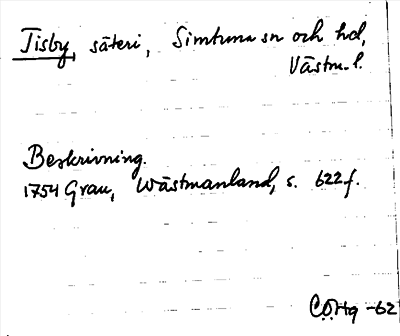 Tisby, säteri, Simtuna sn och hd,
Västm. l.
Beskrivning.
1754 Grau, Wästmanland, s. 622 f.
C.O.Hg -62